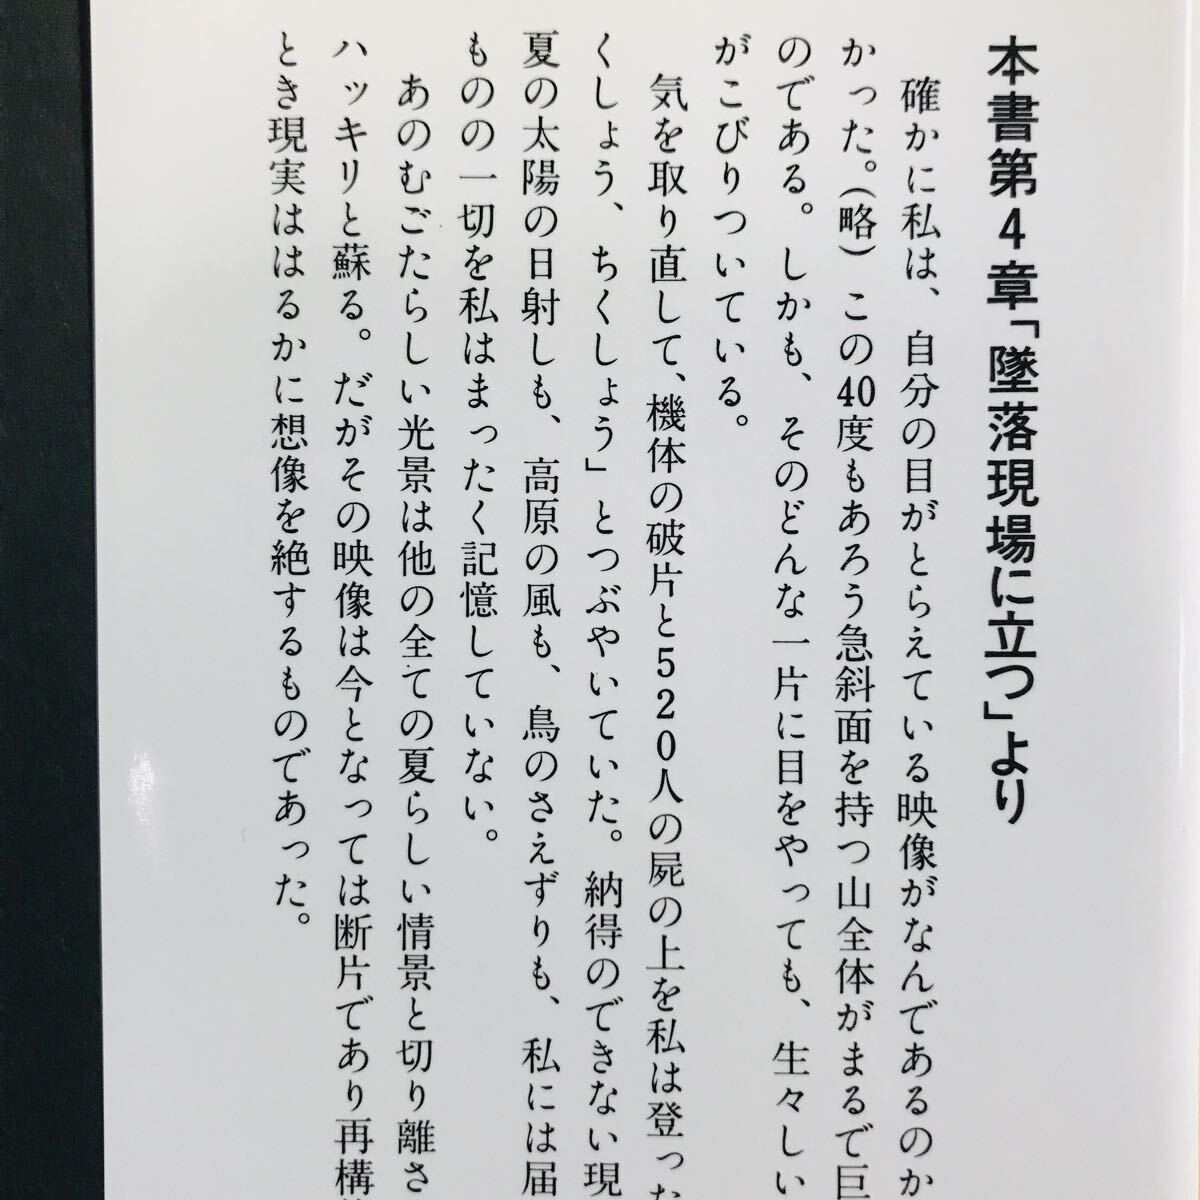 本書第4章「墜落現場に立つ」より
確かに私は、自分の目がとらえている映像がなんであるのか
かった。(略) この40度もあろう急斜面を持つ山全体がまるで巨
のである。しかも、そのどんな一片に目をやっても、生々しい
がこびりついている。
気を取り直して、機体の破片と520人の屍の上を私は登った
くしょう、ちくしょう」とつぶやいていた。納得のできない現
夏の太陽の日射しも、高原の風も、鳥のさえずりも、私には届
ものの一切を私はまったく記憶していない。
あのむごたらしい光景は他の全ての夏らしい情景と切り離さ
ハッキリと蘇る。だがその映像は今となっては断片であり再構
とき現実ははるかに想像を絶するものであった。